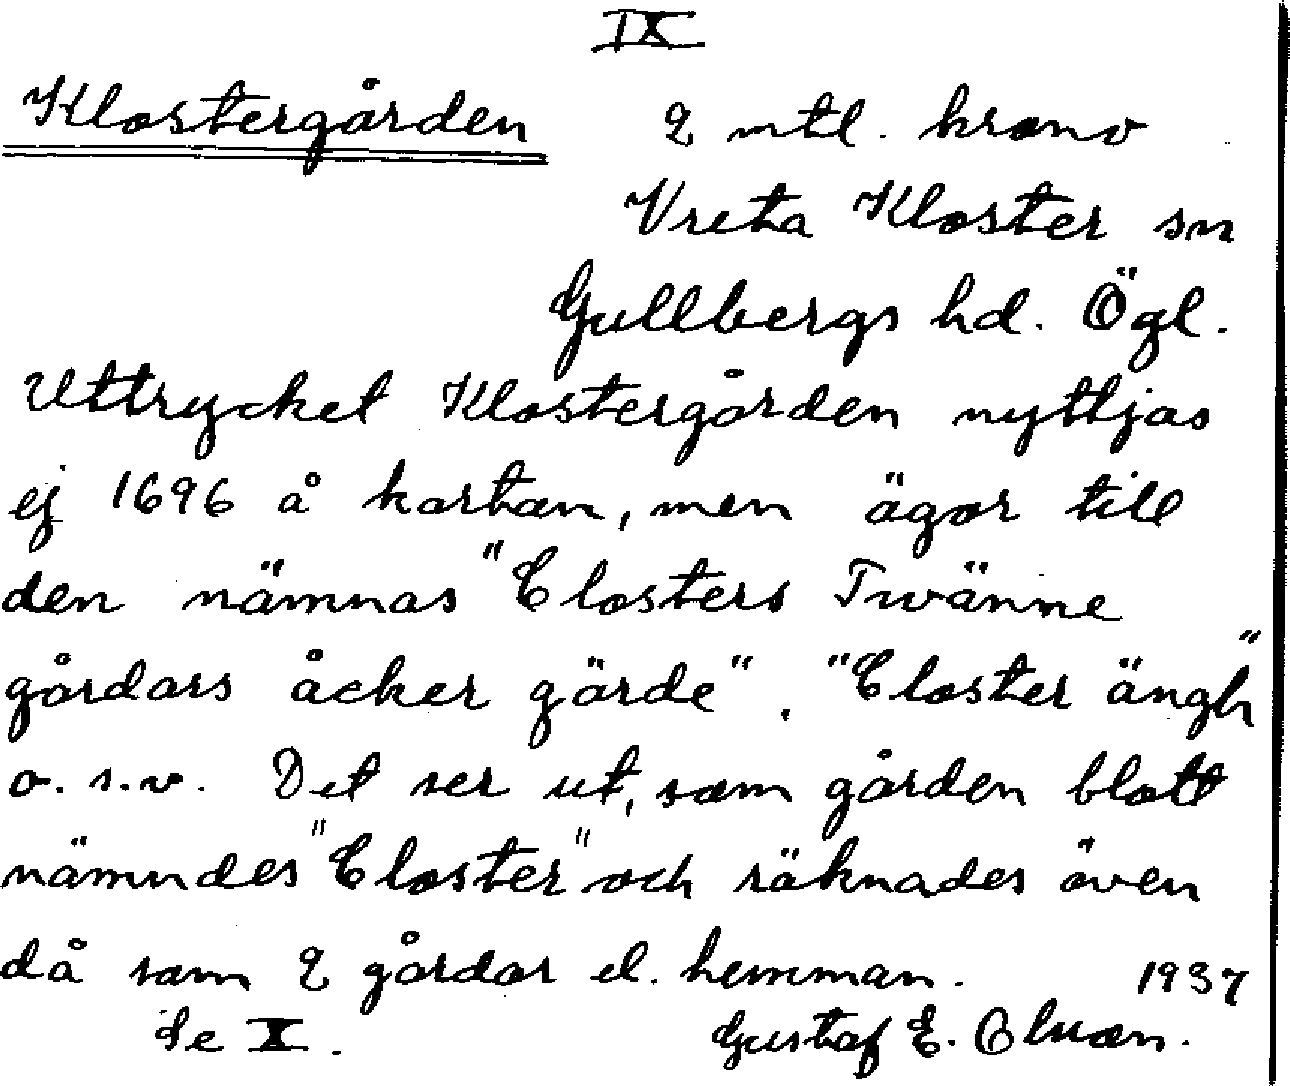 IX
Klostergården 2 mtl. krono
Vreta Kloster sn
Gullbergs hd. Ögl.
Uttrycket Klostergården nyttjas
ej 1696 å kartan, men ägor till
den nämnas "Closters Twänne
gårdars åcker gärde". "Closter ängh"
o.s.v. Det ser ut, som gården blott
nämndes "Closter" och räknades även
då som 2 gårdar el. hemman. 1937
Se X. Gustaf E.